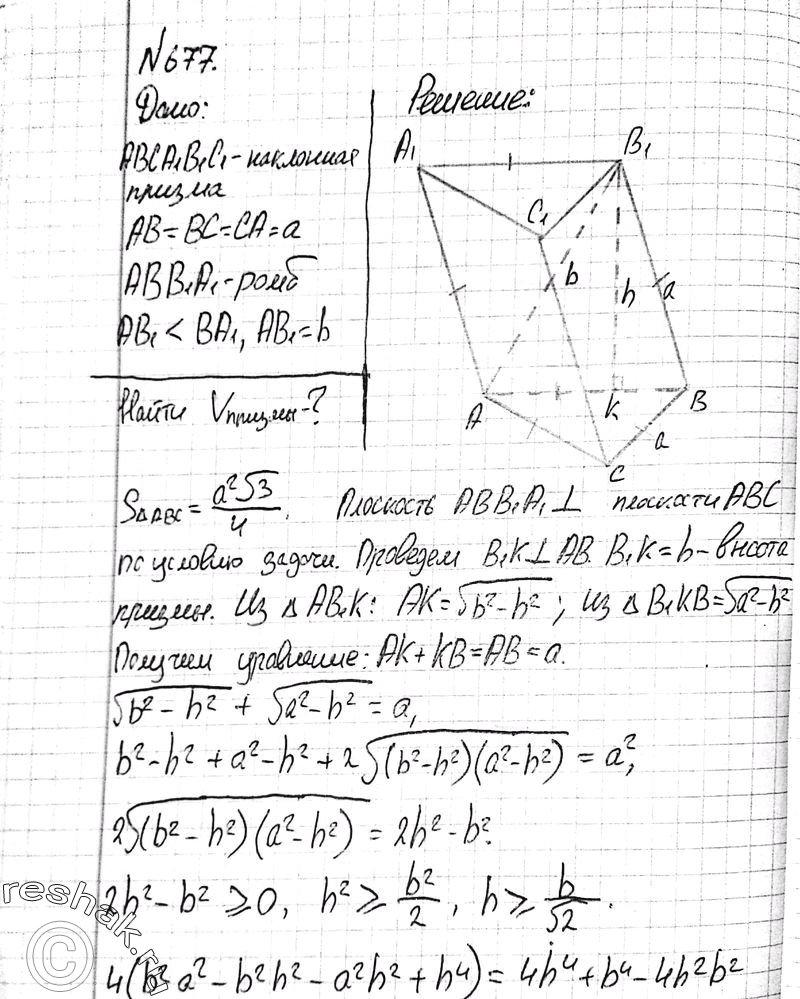 N677.
Дано:
ABCA₁B₁C₁ - наклонная
призма
AB = BC = CA = a
ABB₁A₁ - ромб
AB₁ < BA₁, AB₁ = b
Найти Vпризмы - ?
Решение:
A₁
B₁
C₁
b
h
a
A
K
B
a
C
S△ABC = a²√3/4. Плоскость ABB₁A₁ ⊥ плоскости ABC
по условию задачи. Проведем B₁K ⊥ AB. B₁K = h - высота
призмы. Из △ AB₁K: AK = √(b² - h²); из △ B₁KB = √(a² - h²)
Получим уравнение: AK + KB = AB = a.
√(b² - h²) + √(a² - h²) = a,
b² - h² + a² - h² + 2√((b² - h²)(a² - h²)) = a²,
2√((b² - h²)(a² - h²)) = 2h² - b².
2h² - b² ⩾ 0, h² ⩾ b²/2, h ⩾ b/√2.
4(b²a² - b²h² - a²h² + h⁴) = 4h⁴ + b⁴ - 4h²b²
reshak.ru
©